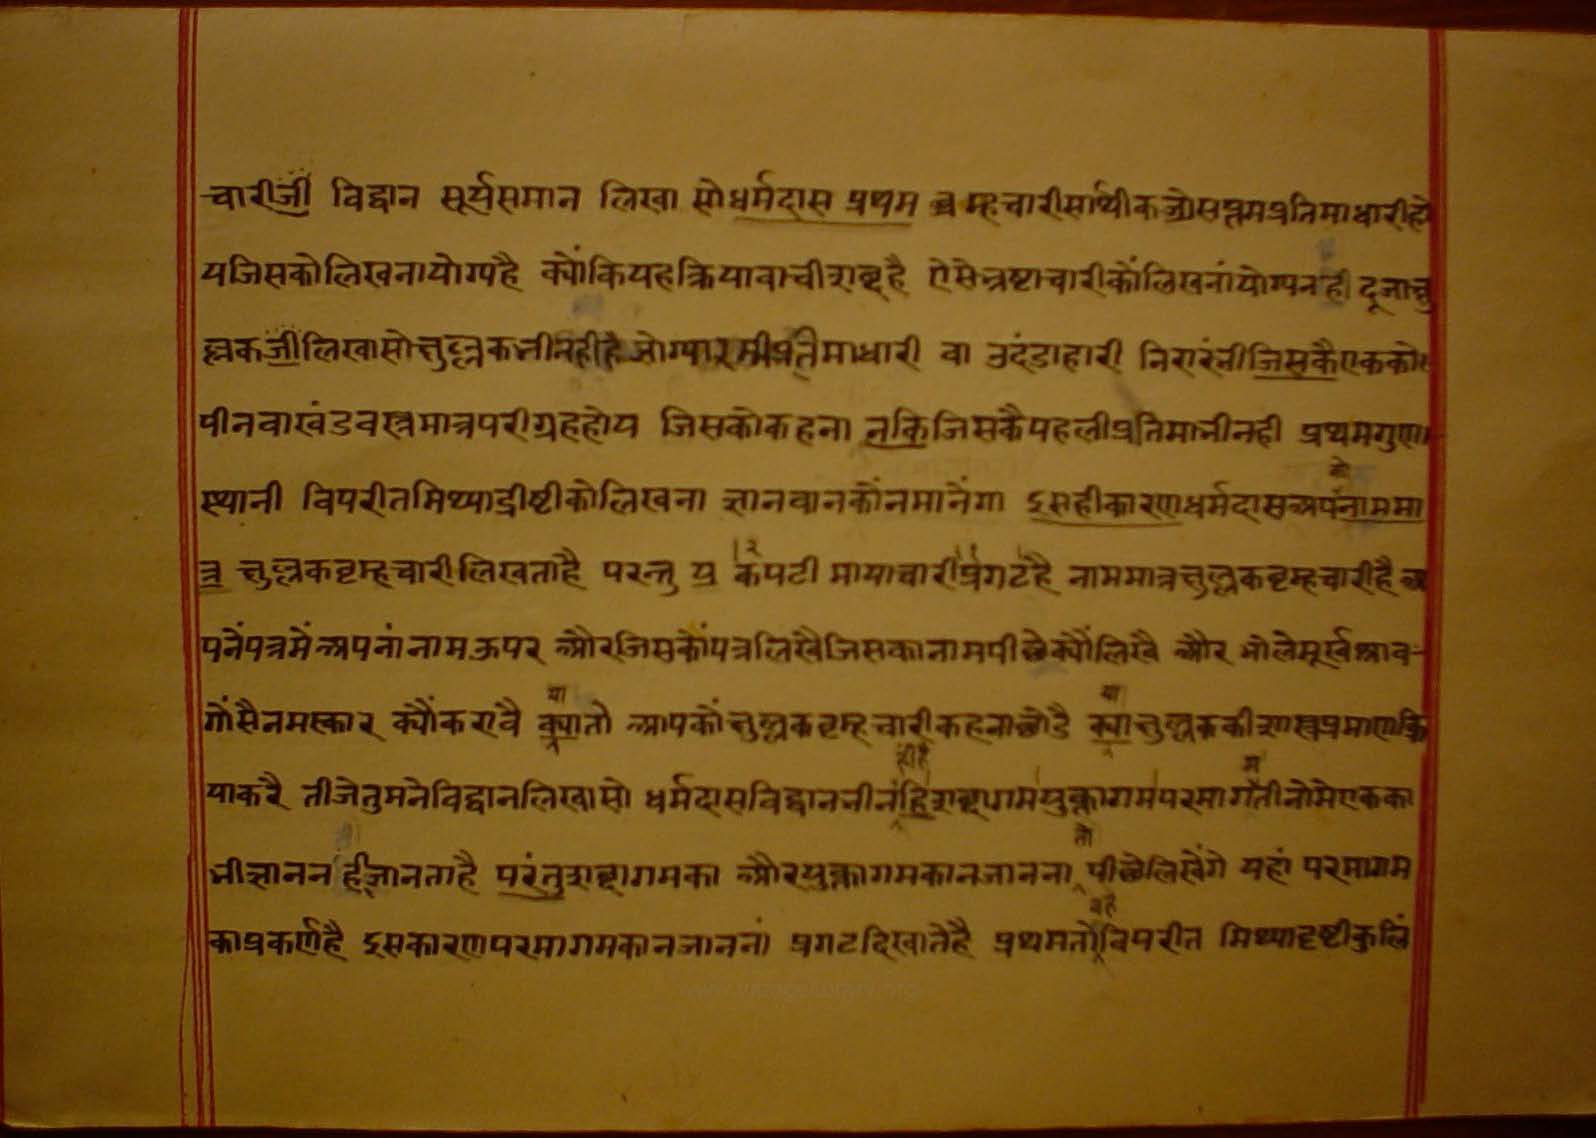 चारीजी विद्वान सूर्यसमान लिखा सो धर्मदास प्रथम ब्रम्हचारी सार्थीक जो सप्तम प्रतिमाधारी हो
य जिसको लिखना योग्य है क्योंकि यह क्रियावाची शब्द है ऐसे भ्रष्टाचारीकों लिखनां योग्य नही दूजा क्षु
ल्लकजी लिखा सो क्षुल्लक भी नही है जो ग्यारमी प्रतिमाधारी वा उदंडाहारी निरारंभी जिसकै एक को
पीन वा खंड वस्त्र मात्र परीग्रह होय जिसको कहना न कि जिसकै पहली प्रतिमा भी नही प्रथम गुण
स्थानी विपरीत मिथ्याद्रीष्टीको लिखना ज्ञानवान कोंन मानेंगा इसही कारण धर्मदास अपनेंको नाम मा
त्र क्षुल्लक ब्रम्हचारी लिखता है परन्तु प्र कपटी मायाचारी प्रगट है नाम मात्र क्षुल्लक ब्रम्हचारी है अ
पनें पत्रमें अपनां नाम ऊपर और जिसकों पत्र लिखै जिसका नाम पीछे क्यों लिखै और भोले मूर्ख श्राव
गोंसै नमस्कार क्यों करावै क्या या तो आपकों क्षुल्लक ब्रम्हचारी कहना छोडै क्या या क्षुल्लक की शास्त्र प्रमाण क्रि
या करै तीजे तुमने विद्वान लिखा सो धर्मदास विद्वान भी नंहि ही है शब्दागम युक्तागम परमागम तीनोमे एक का
भी ज्ञान नंही जानता है परंतु शब्दागम का और युक्तागम का न जानना तो पीछे लिखेंगे यहां परमागम
का प्रकर्ण है इस कारण परमागम का न जाननां प्रगट दिखाते है प्रथम तो वह विपरीत मिथ्याद्रष्टी कुलिं